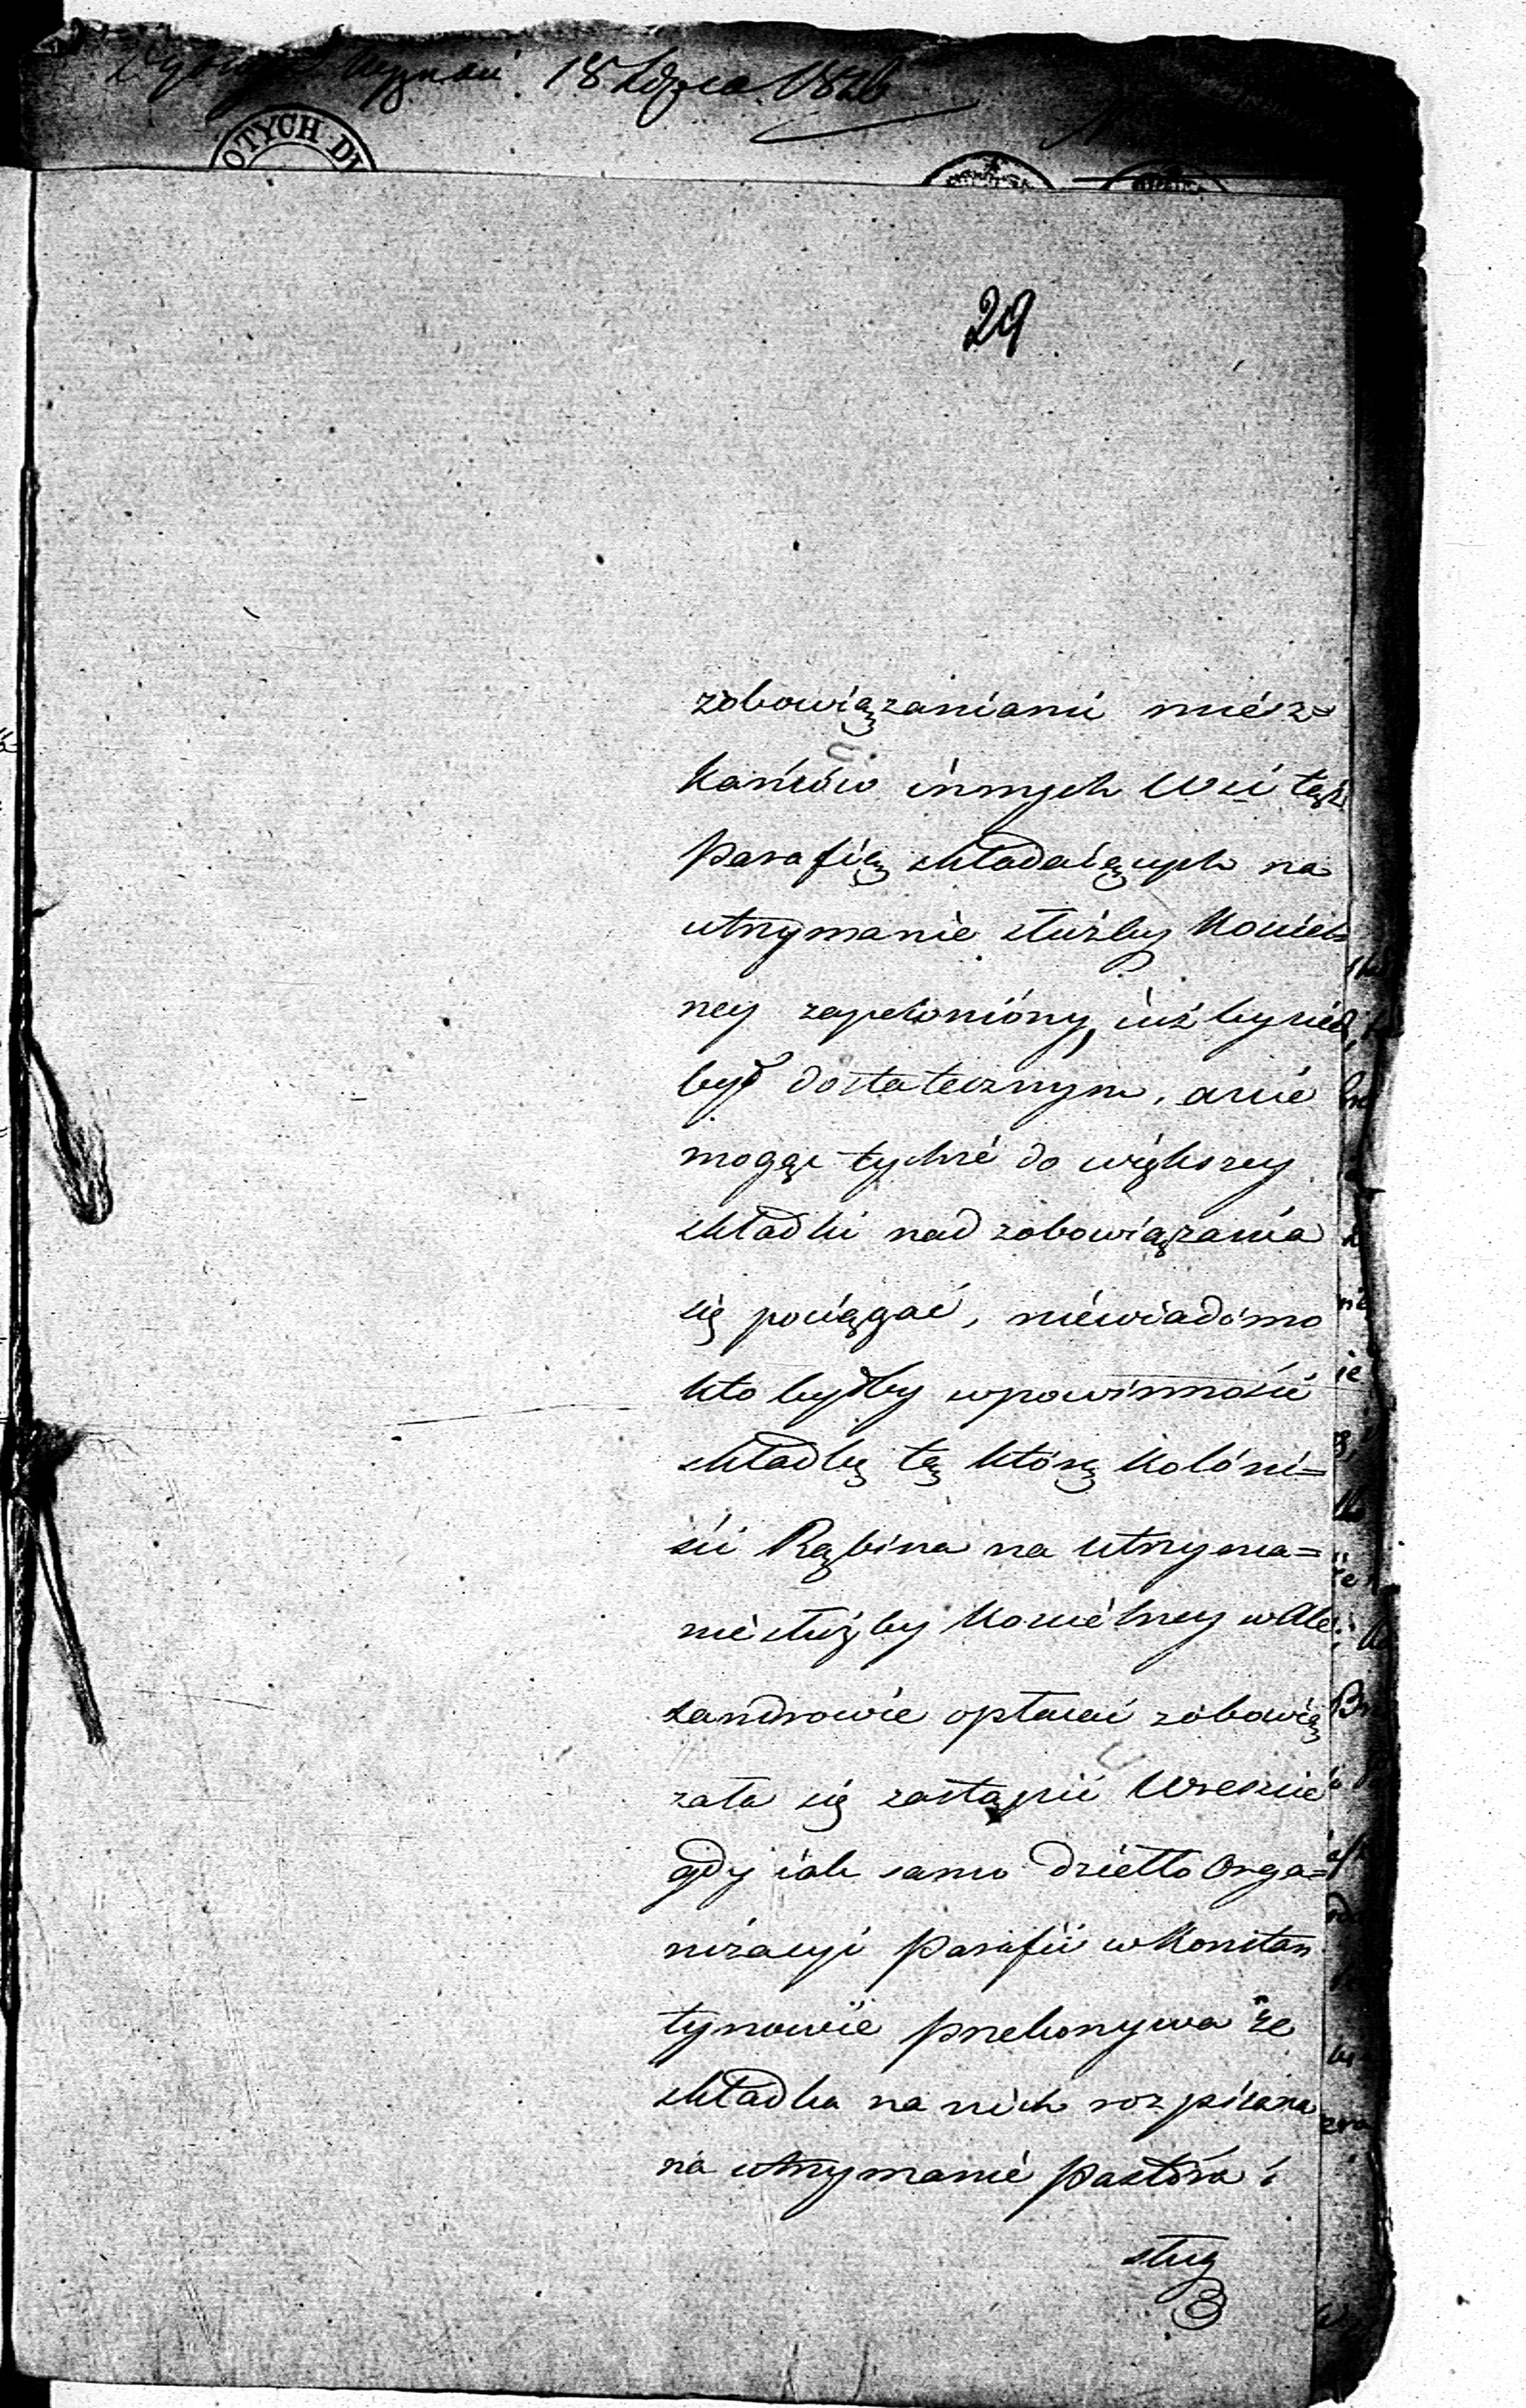 18 Lipca 1826
OTYCH DW
29
zobowiązaniami miesz=
kańców innych Wsi tęż
parafią składaiących na
utrzymanie służby Koście=
ney zapewniony, iużby nied
był dostatecznym, a nie
mogąc tychże do większey
składki nad zobowiązania
się pociągać, niewiadomo
kto byłby w powinności
składkę tę którą Kolóni=
ści Rąbina na utrzyma=
nie służby Kościelney w Ale
xandrowie opłacać zobowią
zała się zastąpić Wreszcie
gdy iak samo dzieło Orga=
nizacyi Parafii w Konstan
tynowie przekonywa że
składka na nich rozpisana
na utrzymanie Pastora i
sług
3